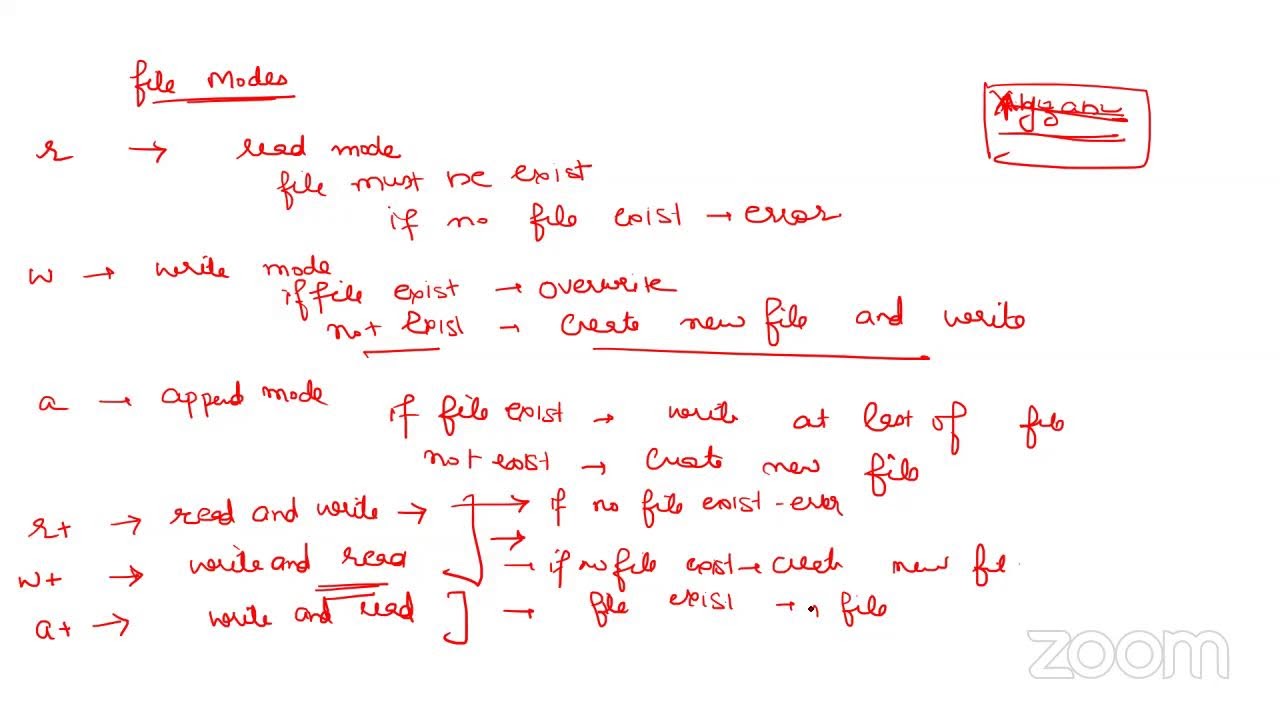 file Modes
r → read mode
file must be exist
if no file exist → error
w → write mode
if file exist → overwrite
not exist → create new file and write
a → append mode
if file exist → write at last of file
not exist → create new file
r+ → read and write → → if no file exist - error
w+ → write and read → if no file exist → create new file
a+ → write and read → file exist → file
zoom